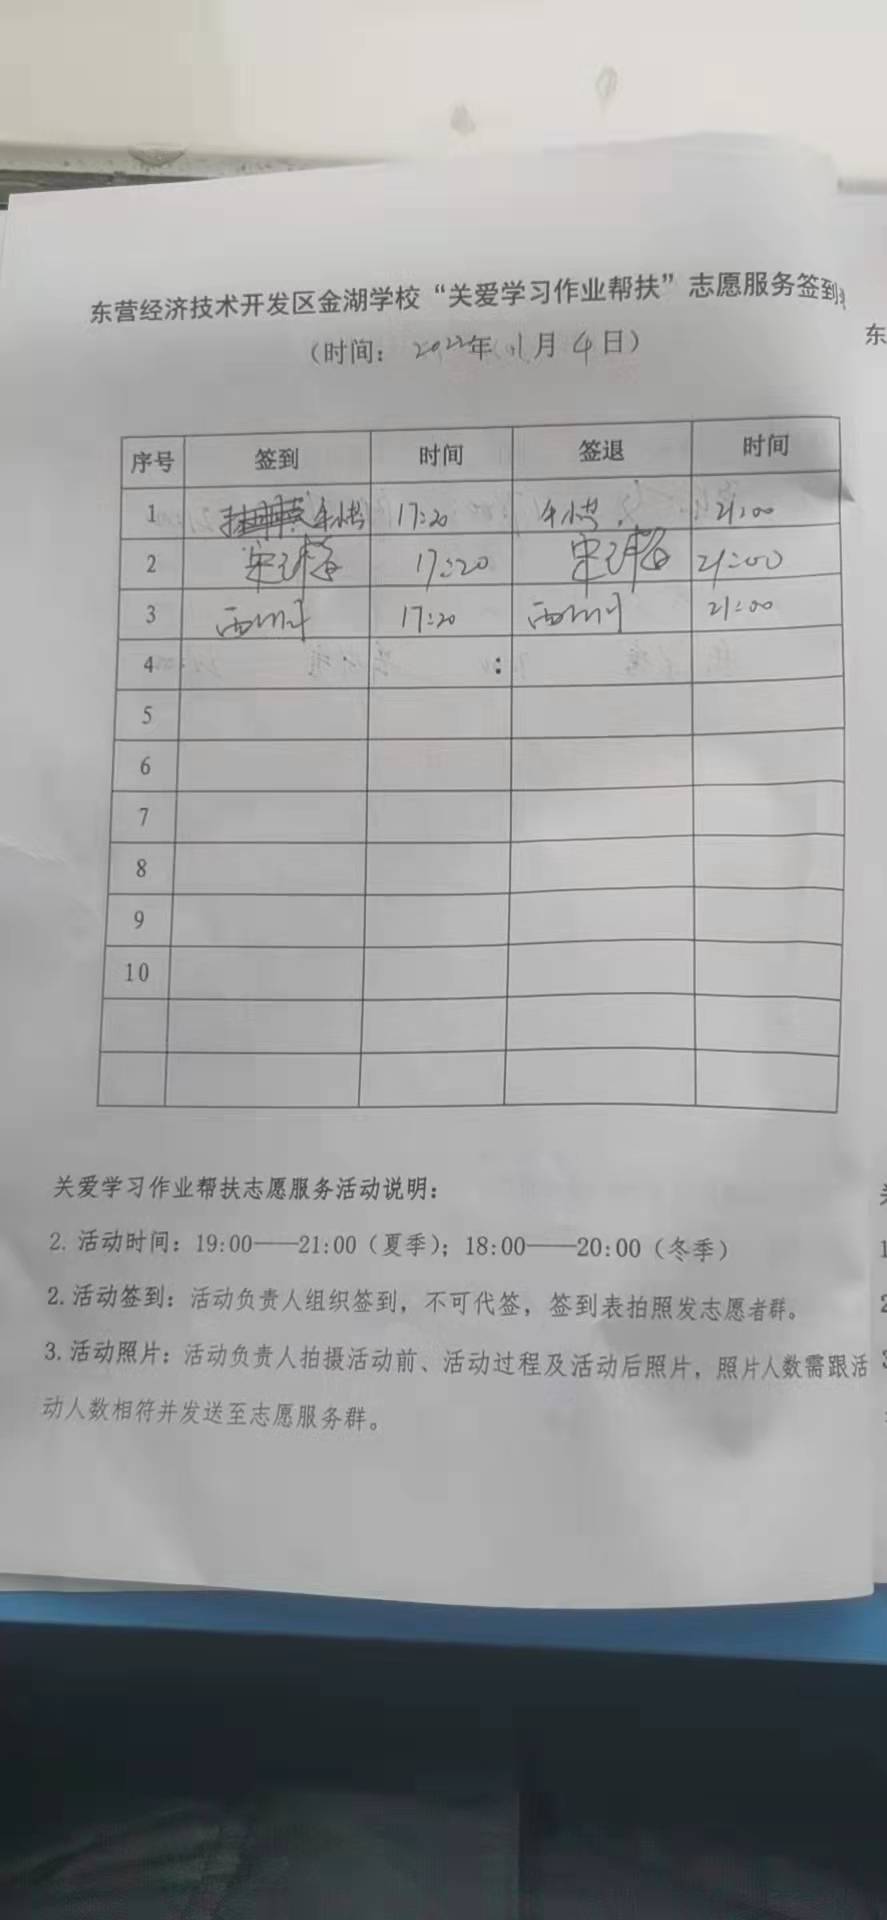 东营经济技术开发区金湖学校“关爱学习作业帮扶”志愿服务签到
（时间： 2022年 11月 4日）
东
序号 签到 时间 签退 时间
1 17:20 21:00
2 17:20 21:00
3 17:20 21:00
4 :
5
6
7
8
9
10
关爱学习作业帮扶志愿服务活动说明：
2. 活动时间：19:00——21:00（夏季）；18:00——20:00（冬季）
2. 活动签到：活动负责人组织签到，不可代签，签到表拍照发志愿者群。
3. 活动照片：活动负责人拍摄活动前、活动过程及活动后照片，照片人数需跟活
动人数相符并发送至志愿服务群。